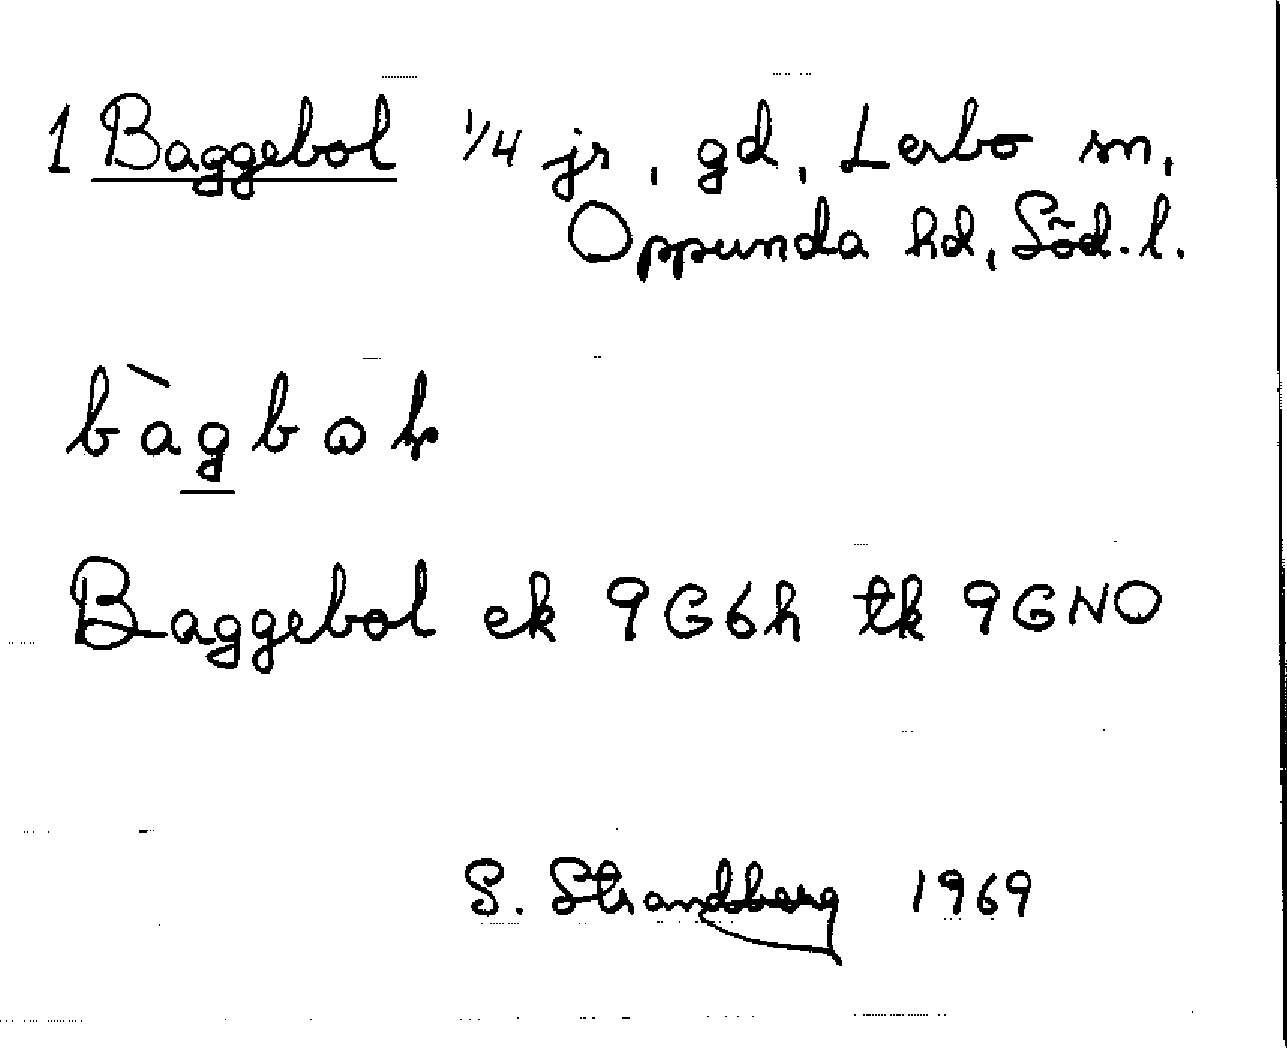 1 Baggebol 1/4 jr, gd, Lerbo sn,
Oppunda hd, Söd. l.
Baggebol ek 9G6h tk 9GNO
S. Strandberg 1969